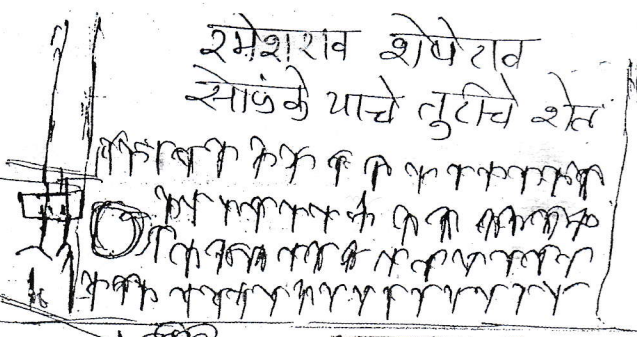 रमेशराव शेषेराव
सोळंके याचे तुटीचे शेत